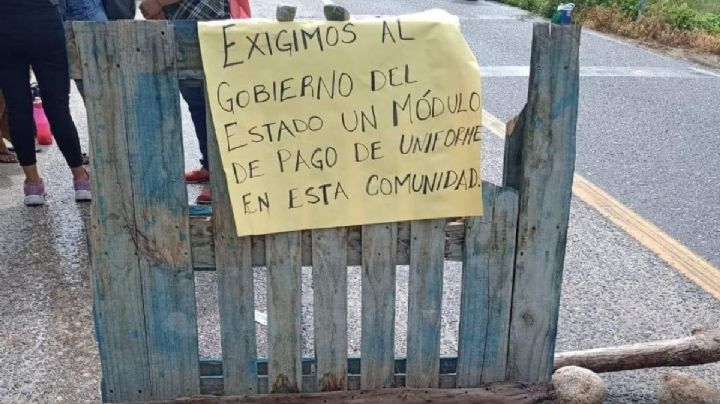 EXIGIMOS AL
GOBIERNO DEL
ESTADO UN MÓDULO
DE PAGO DE UNIFORME
EN ESTA COMUNIDAD.